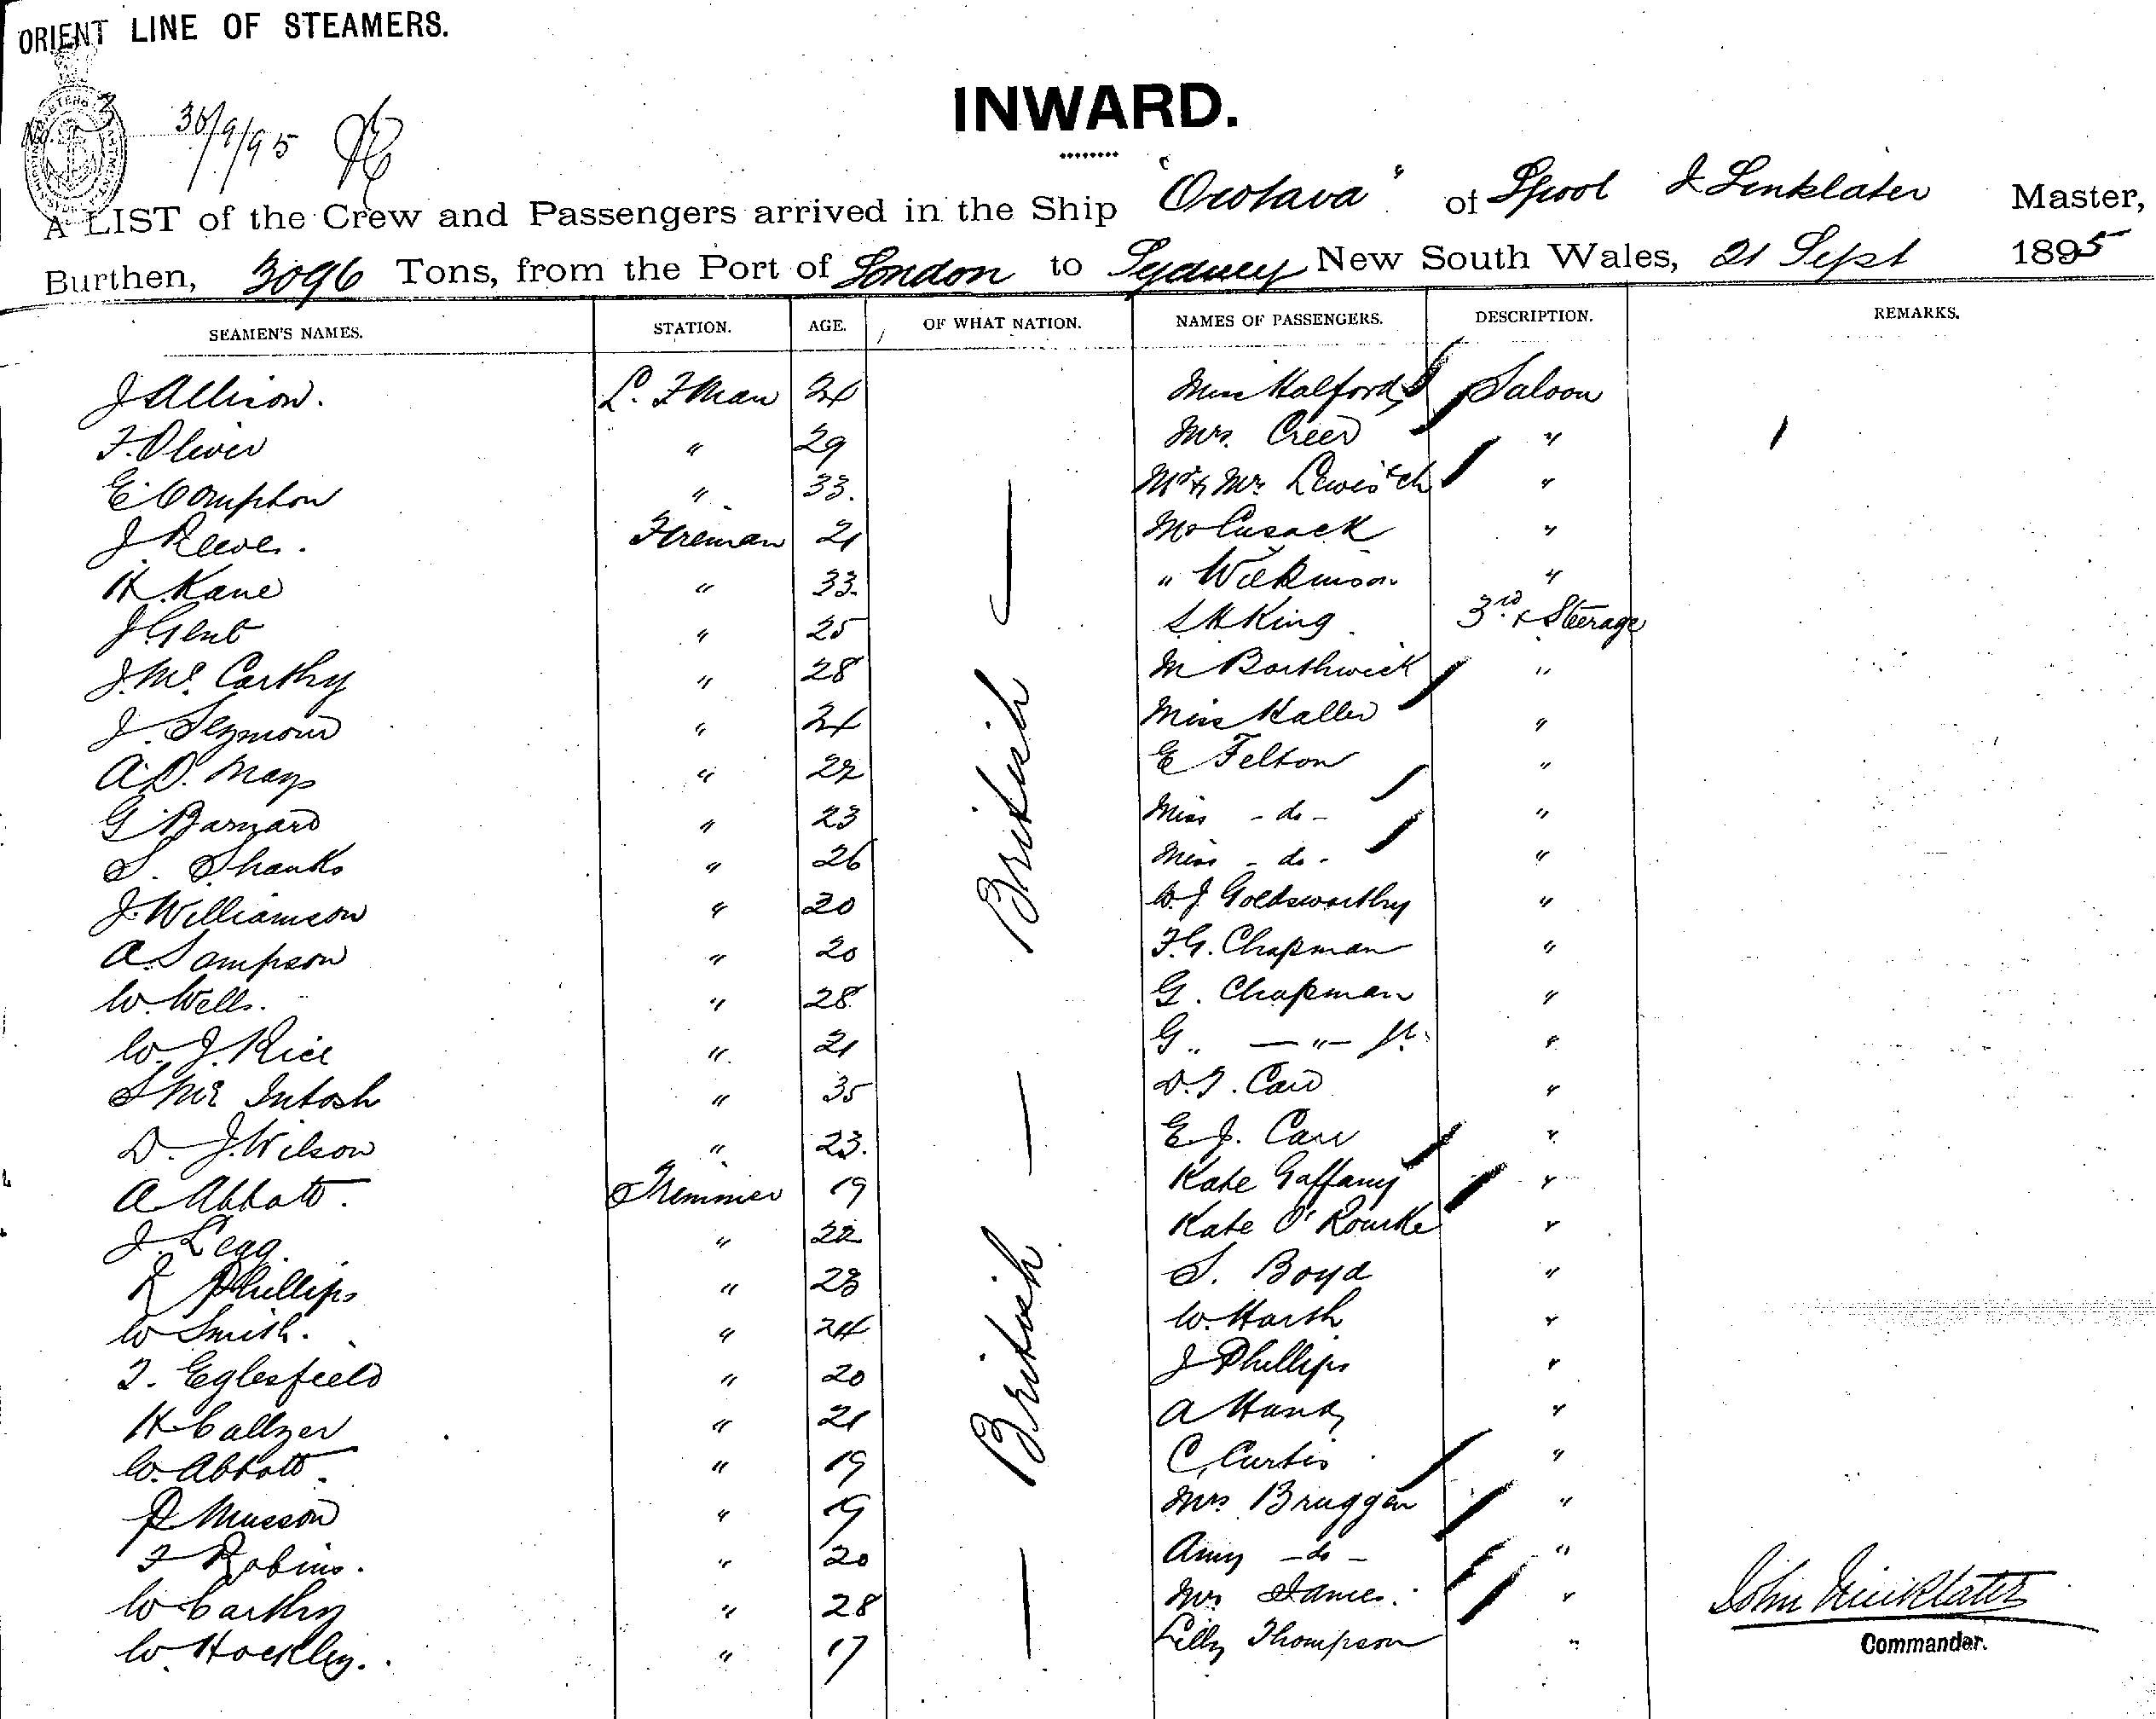 ORIENT LINE OF STEAMERS.
30/9/95
INWARD.
A LIST of the Crew and Passengers arrived in the Ship "Orotava" of L'pool J Linklater Master,
Burthen, 3096 Tons, from the Port of London to Sydney New South Wales, 21 Sept 1895
SEAMEN'S NAMES. STATION. AGE. OF WHAT NATION. NAMES OF PASSENGERS. DESCRIPTION. REMARKS.
J Allison. L. Fman 24 Miss Halford Saloon
F. Oliver " 29 Mrs. Creed "
E. Compton " 33. Mr & Mrs "
J. Reeves. Fireman 21 Mr Cusack "
H. Kane " 33. " Wilkinson "
J Gent " 25 King 3rd & Steerage
J. Mc Carthy " 28 M Borthwick "
J. Seymour " 24 Miss Haller "
A.D. Mays " 22 E Felton "
G Barnard " 23 Miss - do - "
S. Shanks " 26 Miss - do - "
J. Williamson " 20 W. J Goldsworthy "
A. Sampson " 20 F. G. Chapman "
W. Wells. " 28 G. Chapman "
W. J. Rice " 21 G " — " — Jr. "
S Mc Intosh " 35 Carr "
D. J. Wilson " 23. E J. Carr "
A Abbott. Tremmer 19 Kate Gaffany "
J. Legg. " 22 Kate O'Rourke "
Phillips " 23 S. Boyd "
W Smith. " 24 W. Harsh "
Eglesfield " 20 J Phillips "
H " 21 A "
W. Abbott. " 19 C. Curtis "
Musson " 19 Mrs Bruggen "
F Robins. " 20 Amy - do - "
W Carthy " 28 Mrs "
W. Hockley. " 17 Lilly Thompson "
— British — British —
John Linklater
Commander.